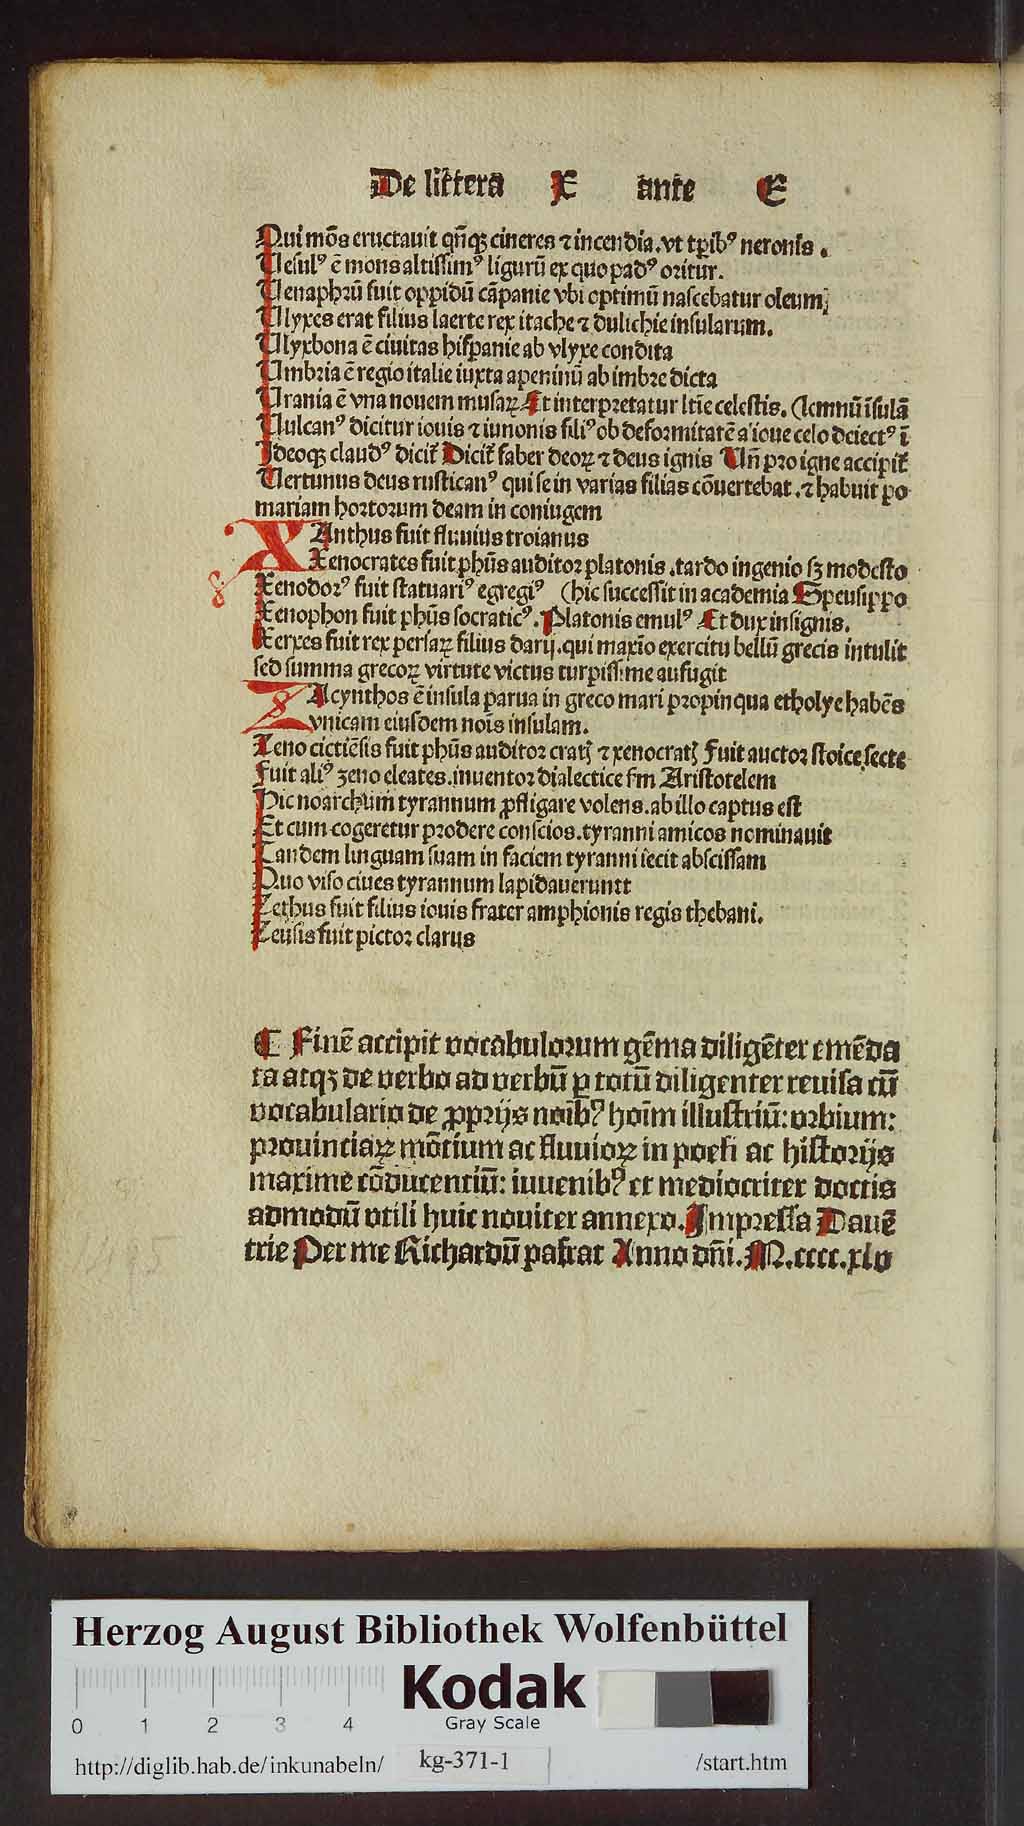 De littera X ante E
Qui mōs eructauit qn̄qꝫ cineres ⁊ incendia. vt tꝑib⁹ neronis.
Uesul⁹ ē mons altissim⁹ ligurū ex quo pad⁹ oritur.
Uenaphrū fuit oppidū cāpanie vbi optimū nascebatur oleum
Ulyxes erat filius laerte rex itache ⁊ dulichie insularum.
Ulyxbona ē ciuitas hispanie ab vlyxe condita
Umbria ē regio italie iuxta apeninū ab imbre dicta
Urania ē vna nouem musaꝝ Et interpretatur ltīe celestis. (lemnū īsulā
Uulcan⁹ dicitur iouis ⁊ iunonis fili⁹ ob deformitatē a ioue celo deiect⁹ ī
Ideoqꝫ claud⁹ dicit᷑ Dicit᷑ faber deoꝝ ⁊ deus ignis Un̄ pro igne accipit᷑
Uertunus deus rustican⁹ qui se in varias filias cōuertebat. ⁊ habuit po
mariam hortorum deam in coniugem
XAnthus fuit fluuius troianus
Xenocrates fuit ph̄us auditor platonis. tardo ingenio sꝫ modesto
Xenodor⁹ fuit statuari⁹ egregi⁹ (hic successit in academia Speusippo
Xenophon fuit ph̄us socratic⁹. Platonis emul⁹ Et dux insignis.
Xerxes fuit rex persaꝝ filius darij. qui maxīo exercitu bellū grecis intulit
sed summa grecoꝝ virtute victus turpissime aufugit
ZAcynthos ē insula parua in greco mari propinqua etholye habēs
vnicam eiusdem noīs insulam.
Zeno cictiēsis fuit ph̄us auditor cratꝭ ⁊ xenocratꝭ Fuit auctor stoice secte
Fuit ali⁹ zeno eleates. inuentor dialectice ẜm Aristotelem
Hic noarchum tyrannum ꝓfligare volens. ab illo captus est
Et cum cogeretur prodere conscios. tyranni amicos nominauit
Tandem linguam suam in faciem tyranni iecit abscissam
Quo viso ciues tyrannum lapidaueruntt
Zethus fuit filius iouis frater amphionis regis thebani.
Zeusis fuit pictor clarus
¶ Finē accipit vocabulorum gēma diligēter emēda
ta atqꝫ de verbo ad verbū ꝑ totū diligenter reuisa cū
vocabulario de ꝓprijs noīb⁹ hoīm illustriū: vrbium:
prouinciaꝝ mōtium ac fluuioꝝ in poesi ac historijs
maxime cōducentiū: iuuenib⁹ et mediocriter doctis
admodū vtili huic nouiter annexo. Impressa Dauē
trie Per me Richardū pafrat Anno dn̄i. M.cccc.xlv
Herzog August Bibliothek Wolfenbüttel
Kodak
0 1 2 3 4 Gray Scale
http://diglib.hab.de/inkunabeln/ kg-371-1 /start.htm